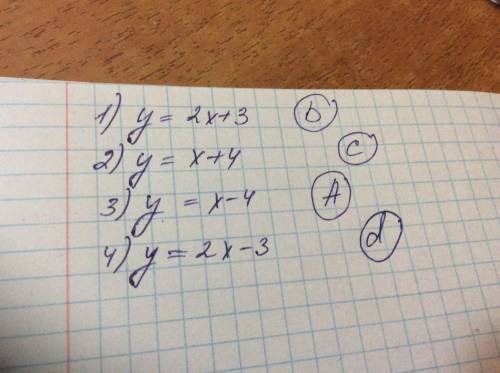 1) y = 2x+3 b
2) y = x+4 c
3) y = x-4 A
4) y = 2x-3 d